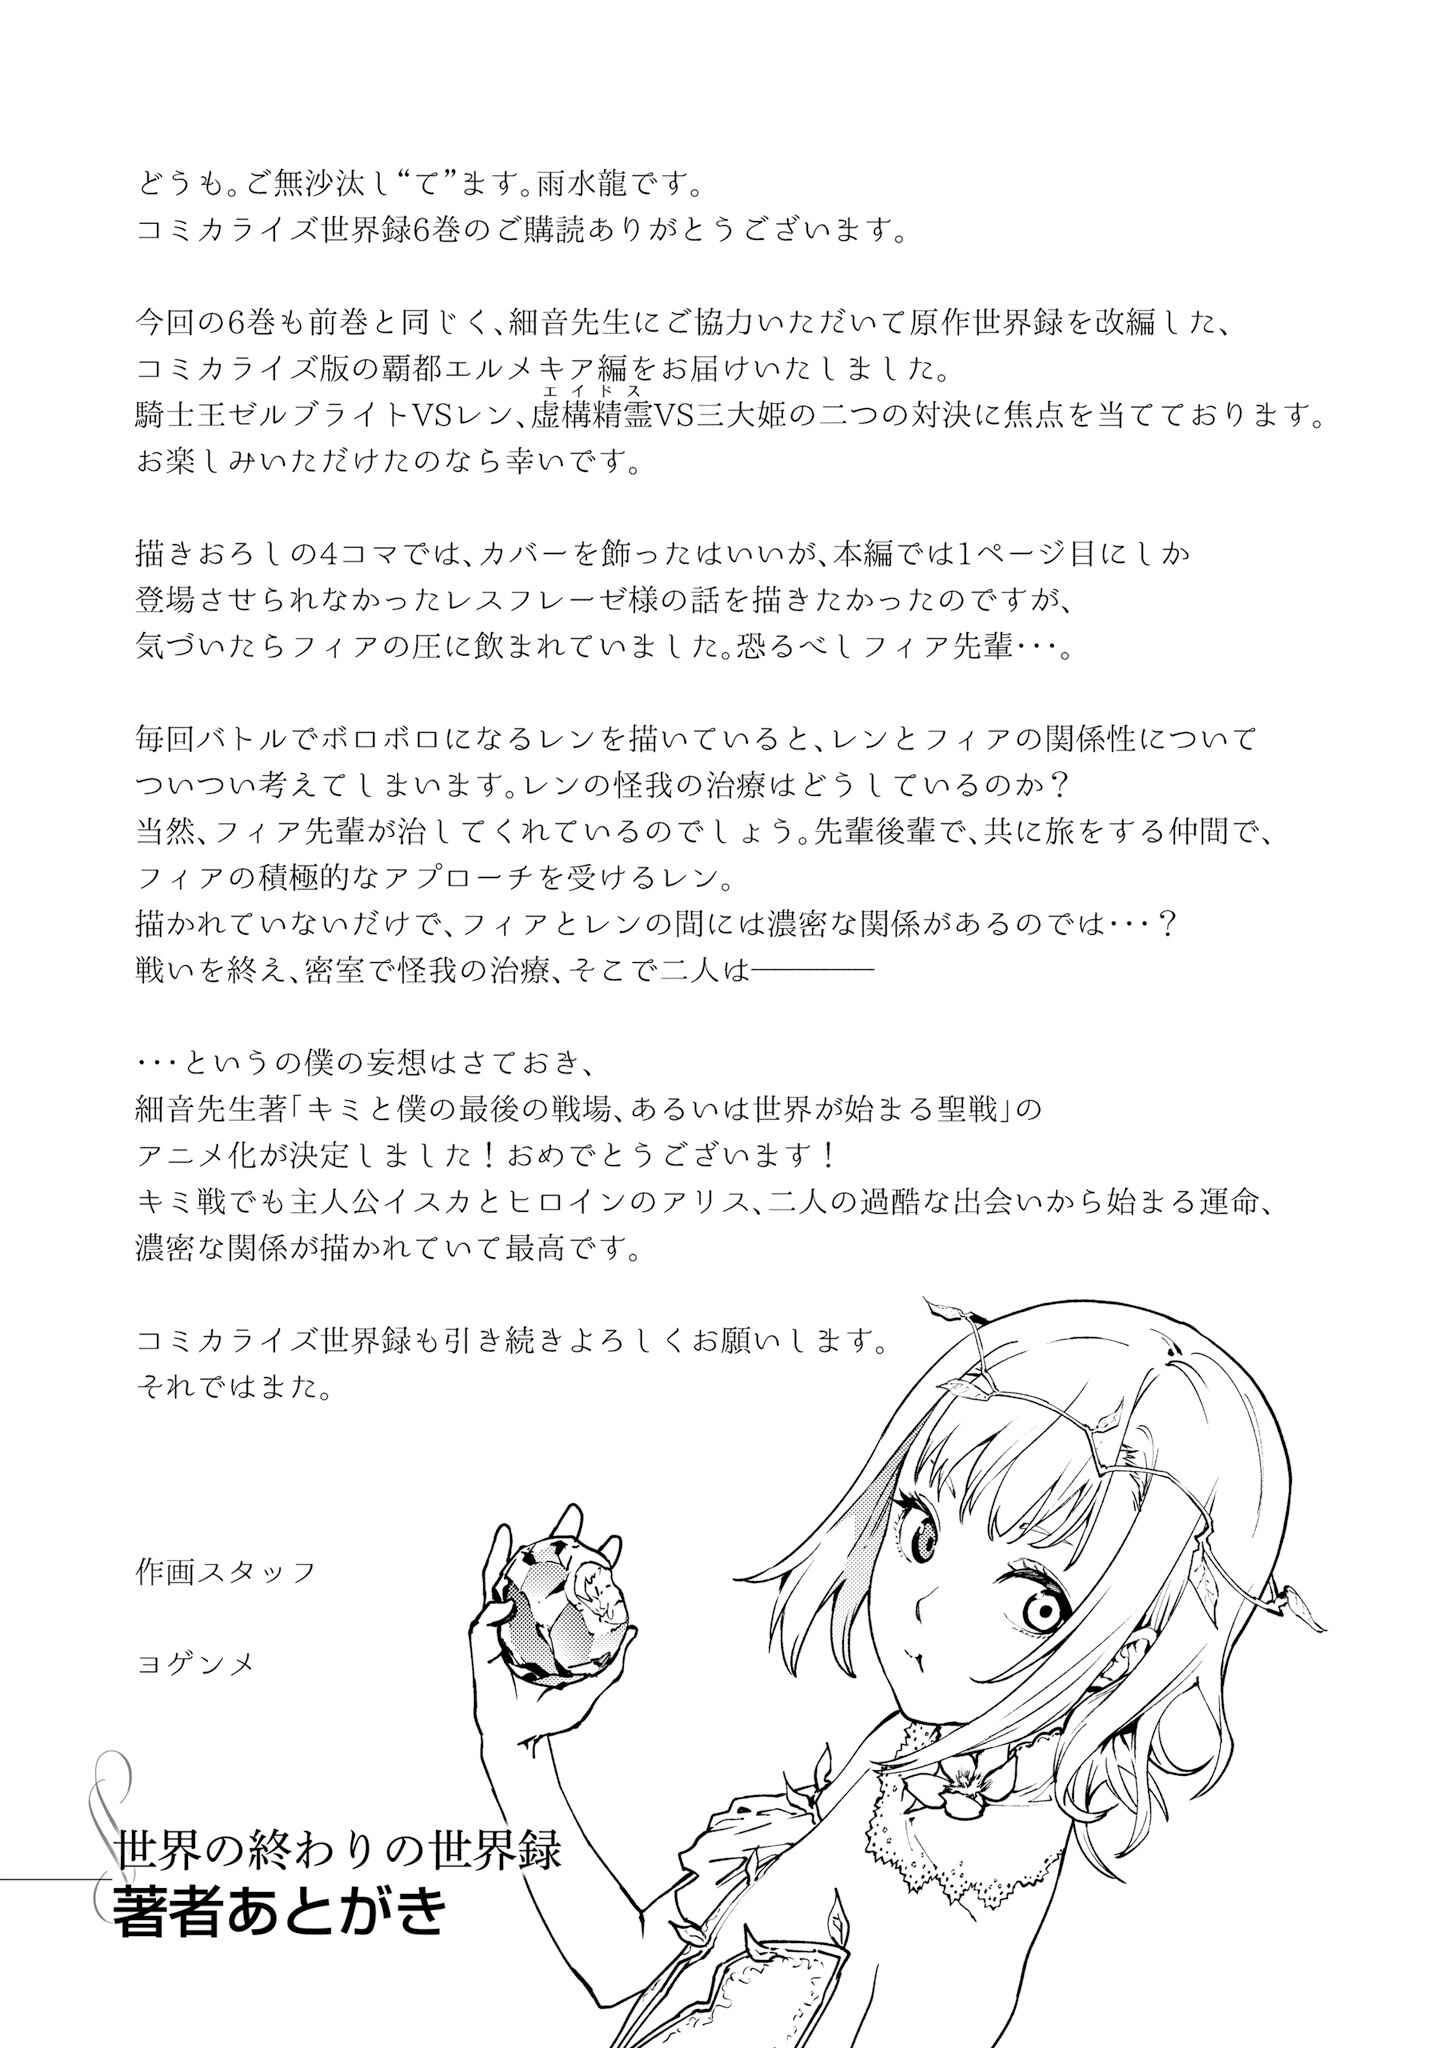 どうも。ご無沙汰し“て”ます。雨水龍です。
コミカライズ世界録6巻のご購読ありがとうございます。
今回の6巻も前巻と同じく、細音先生にご協力いただいて原作世界録を改編した、
コミカライズ版の覇都エルメキア編をお届けいたしました。
エイドス
騎士王ゼルブライトVSレン、虚構精霊VS三大姫の二つの対決に焦点を当てております。
お楽しみいただけたのなら幸いです。
描きおろしの4コマでは、カバーを飾ったはいいが、本編では1ページ目にしか
登場させられなかったレスフレーゼ様の話を描きたかったのですが、
気づいたらフィアの圧に飲まれていました。恐るべしフィア先輩･･･。
毎回バトルでボロボロになるレンを描いていると、レンとフィアの関係性について
ついつい考えてしまいます。レンの怪我の治療はどうしているのか？
当然、フィア先輩が治してくれているのでしょう。先輩後輩で、共に旅をする仲間で、
フィアの積極的なアプローチを受けるレン。
描かれていないだけで、フィアとレンの間には濃密な関係があるのでは･･･？
戦いを終え、密室で怪我の治療、そこで二人は――――
･･･というの僕の妄想はさておき、
細音先生著「キミと僕の最後の戦場、あるいは世界が始まる聖戦」の
アニメ化が決定しました！おめでとうございます！
キミ戦でも主人公イスカとヒロインのアリス、二人の過酷な出会いから始まる運命、
濃密な関係が描かれていて最高です。
コミカライズ世界録も引き続きよろしくお願いします。
それではまた。
作画スタッフ
ヨゲンメ
世界の終わりの世界録
著者あとがき